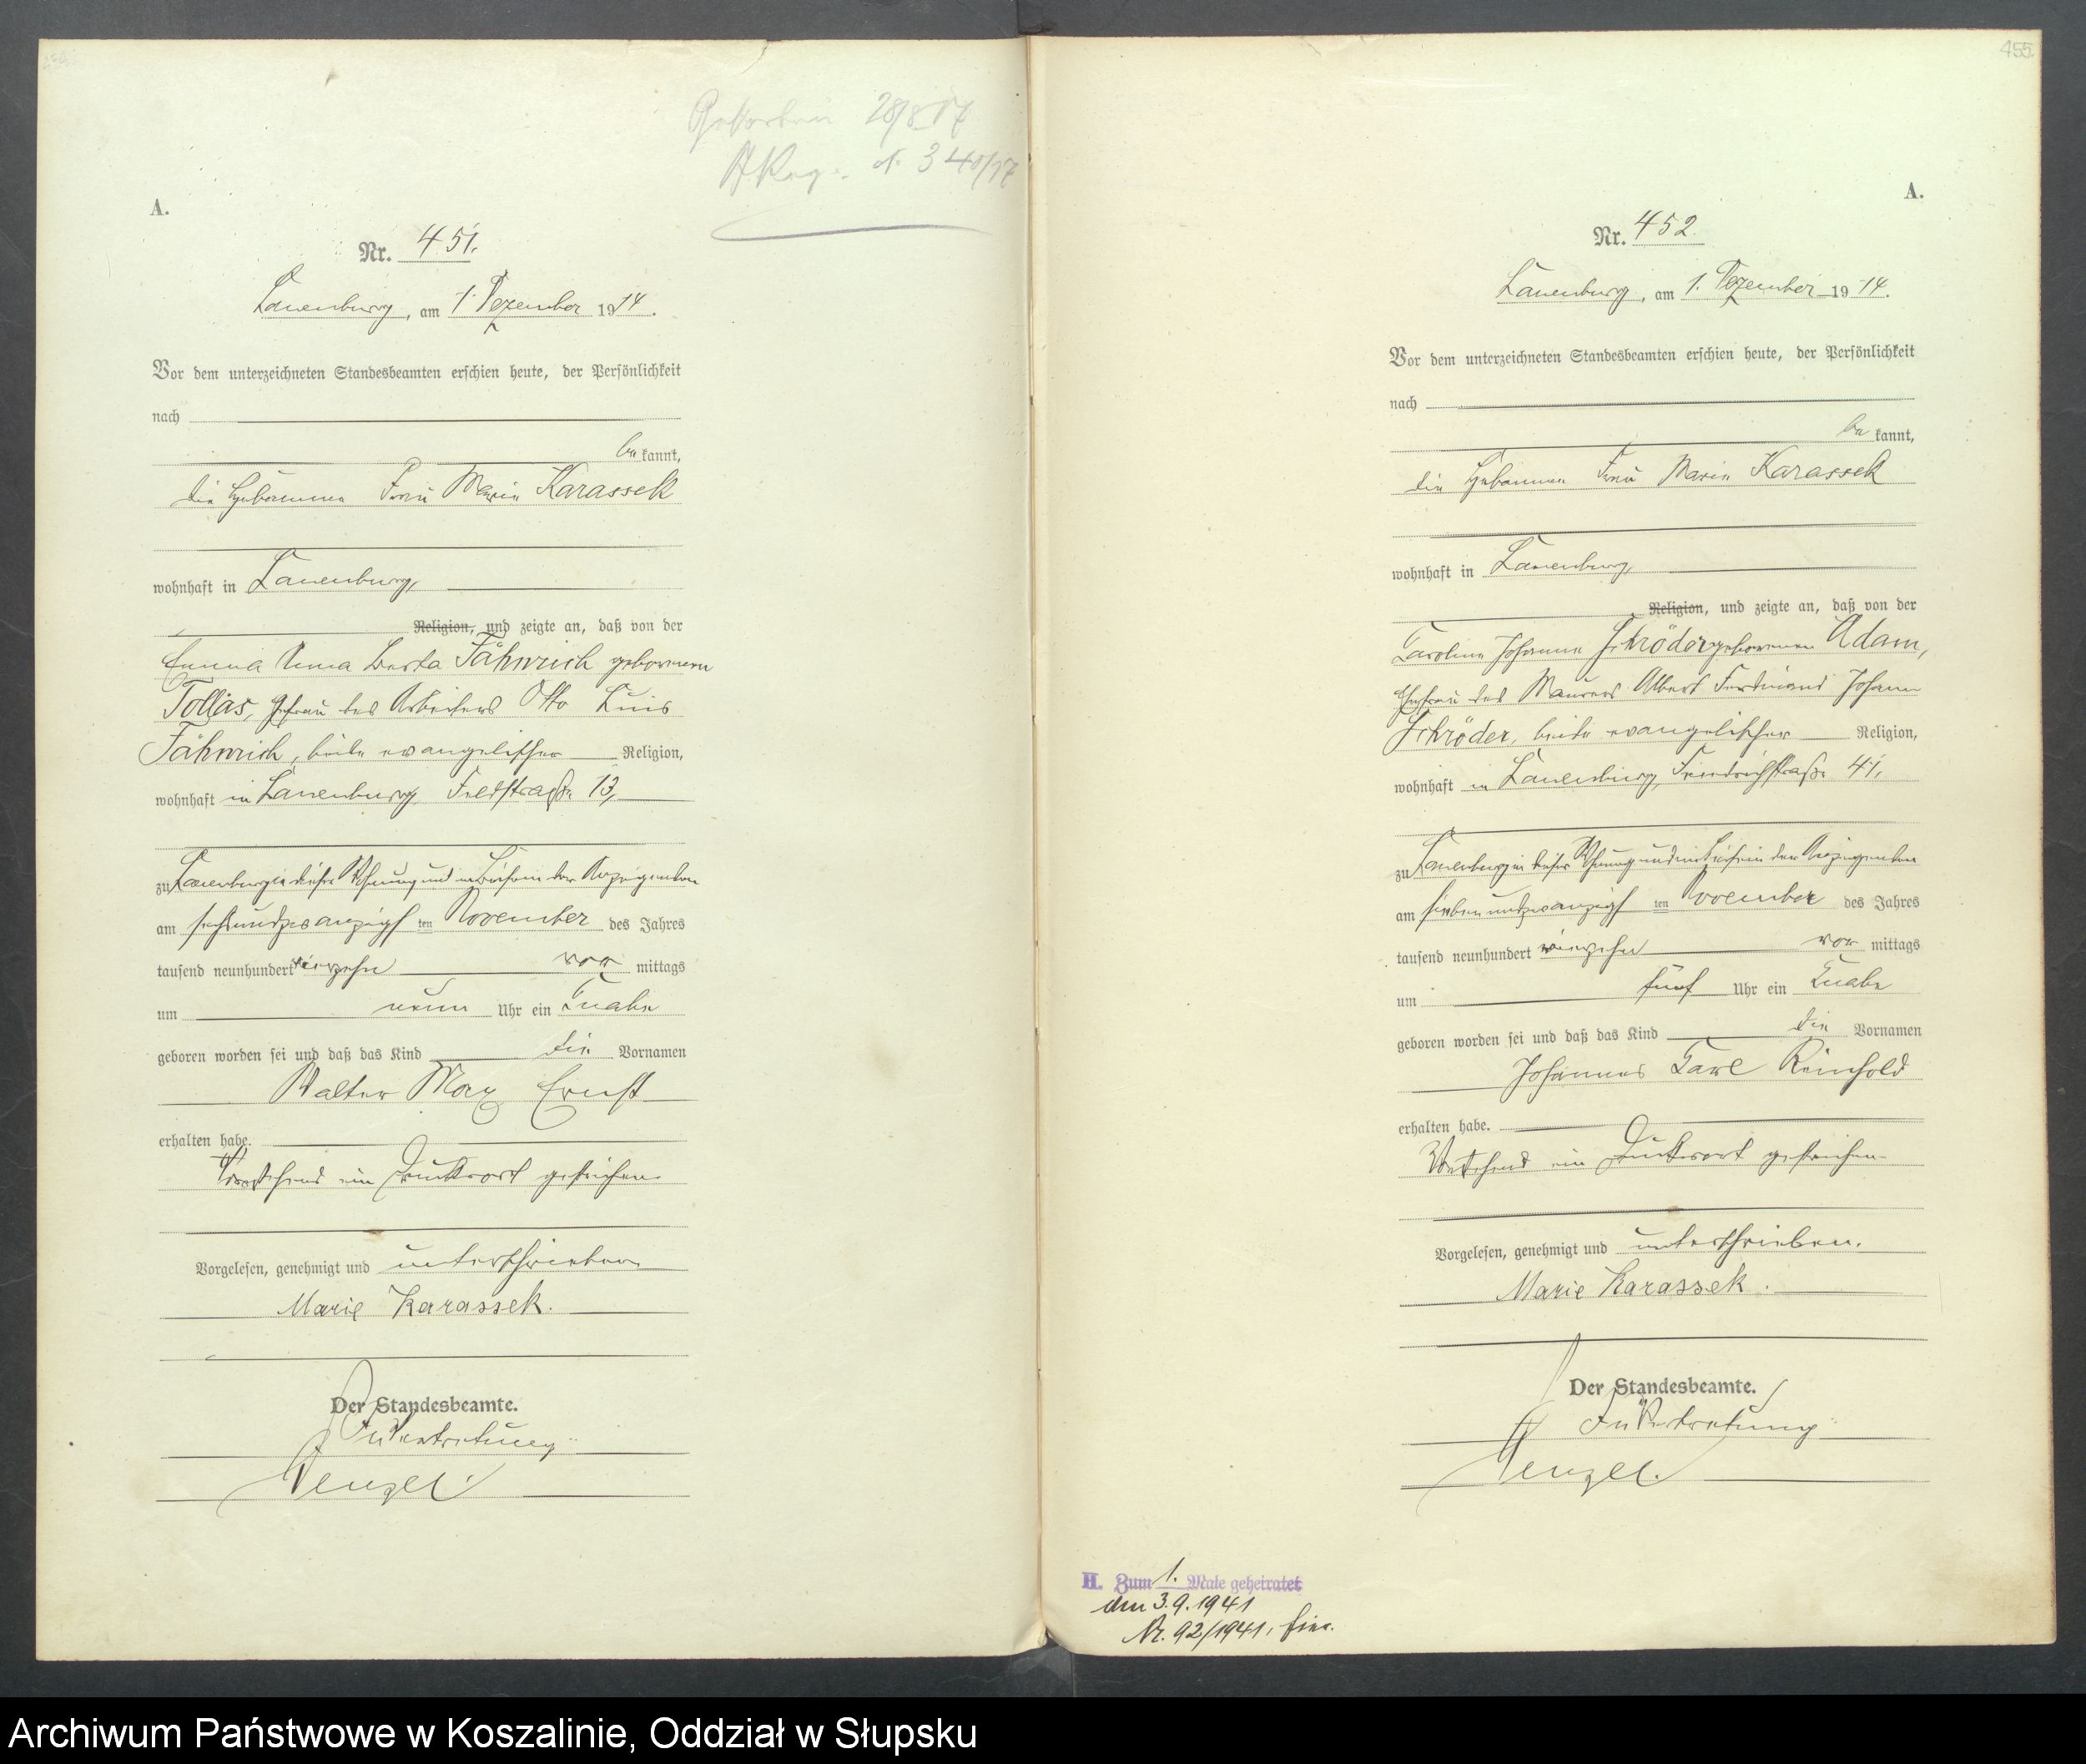 Gestorben 28/8 17
A Reg. N. 340/17
A.
Nr. 451.
Lauenburg, am 1. Dezember 1914.
Vor dem unterzeichneten Standesbeamten erschien heute, der Persönlichkeit
nach
bekannt,
die Hebamme Frau Marie Karassek
wohnhaft in Lauenburg,
Religion, und zeigte an, daß von der
Emma Anna Berta Fähnrich geborenen
Tollas, Ehefrau des Arbeiters Otto Luis
Fähnrich, beide evangelischer Religion,
wohnhaft in Lauenburg Feldstraße 13,
zu Lauenburg in dieser Wohnung und in Beisein der Anzeigenden
am sechsundzwanzigsten November des Jahres
tausend neunhundert vierzehn vormittags
um neun Uhr ein Knabe
geboren worden sei und daß das Kind die Vornamen
Walter Max Ernst
erhalten habe.
Vorstehend ein Druckwort gestrichen.
Vorgelesen, genehmigt und unterschrieben
Marie Karassek.
Der Standesbeamte.
In Vertretung
Wenzel.
455
A.
Nr. 452.
Lauenburg, am 1. Dezember 1914.
Vor dem unterzeichneten Standesbeamten erschien heute, der Persönlichkeit
nach
bekannt,
die Hebamme Frau Marie Karassek
wohnhaft in Lauenburg,
Religion, und zeigte an, daß von der
Karoline Johanna Schröder geborenen Adam,
Ehefrau des Maurers Albert Ferdinand Johann
Schröder, beide evangelischer Religion,
wohnhaft in Lauenburg, Friedrichstraße 41,
zu Lauenburg in dieser Wohnung und in Beisein der Anzeigenden
am siebenundzwanzigsten November des Jahres
tausend neunhundert vierzehn vormittags
um fünf Uhr ein Knabe
geboren worden sei und daß das Kind die Vornamen
Johannes Karl Reinhold
erhalten habe.
Vorstehend ein Druckwort gestrichen.
Vorgelesen, genehmigt und unterschrieben.
Marie Karassek.
Der Standesbeamte.
In Vertretung
Wenzel.
H. Zum 1. Male geheiratet
den 3.9.1941
Nr. 92/1941, hier.
Archiwum Państwowe w Koszalinie, Oddział w Słupsku